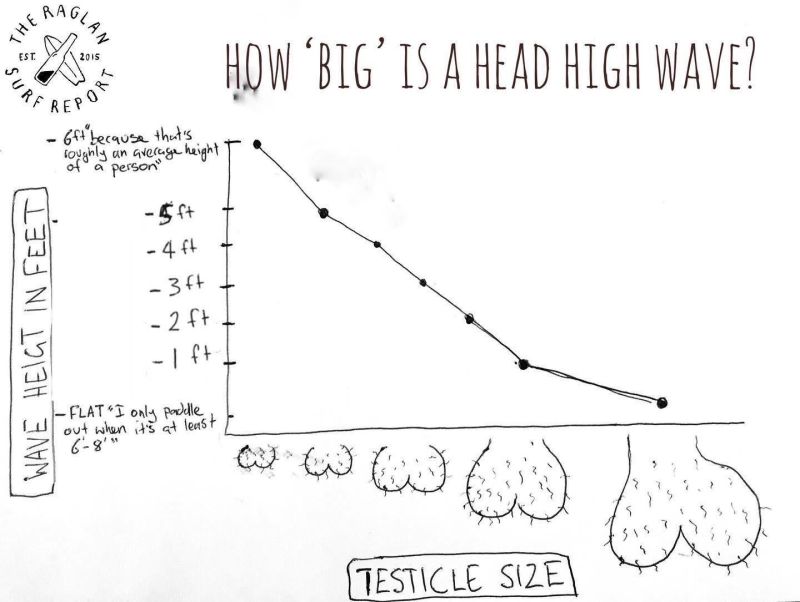 THE RAGLAN
EST. 2015
SURF REPORT
HOW 'BIG' IS A HEAD HIGH WAVE?
- 6ft "because that's
roughly an average height
of a person"
- 5 ft
- 4 ft
- 3 ft
- 2 ft
- 1 ft
- FLAT "I only paddle
out when it's at least
6'-8'"
WAVE HEIGT IN FEET
TESTICLE SIZE